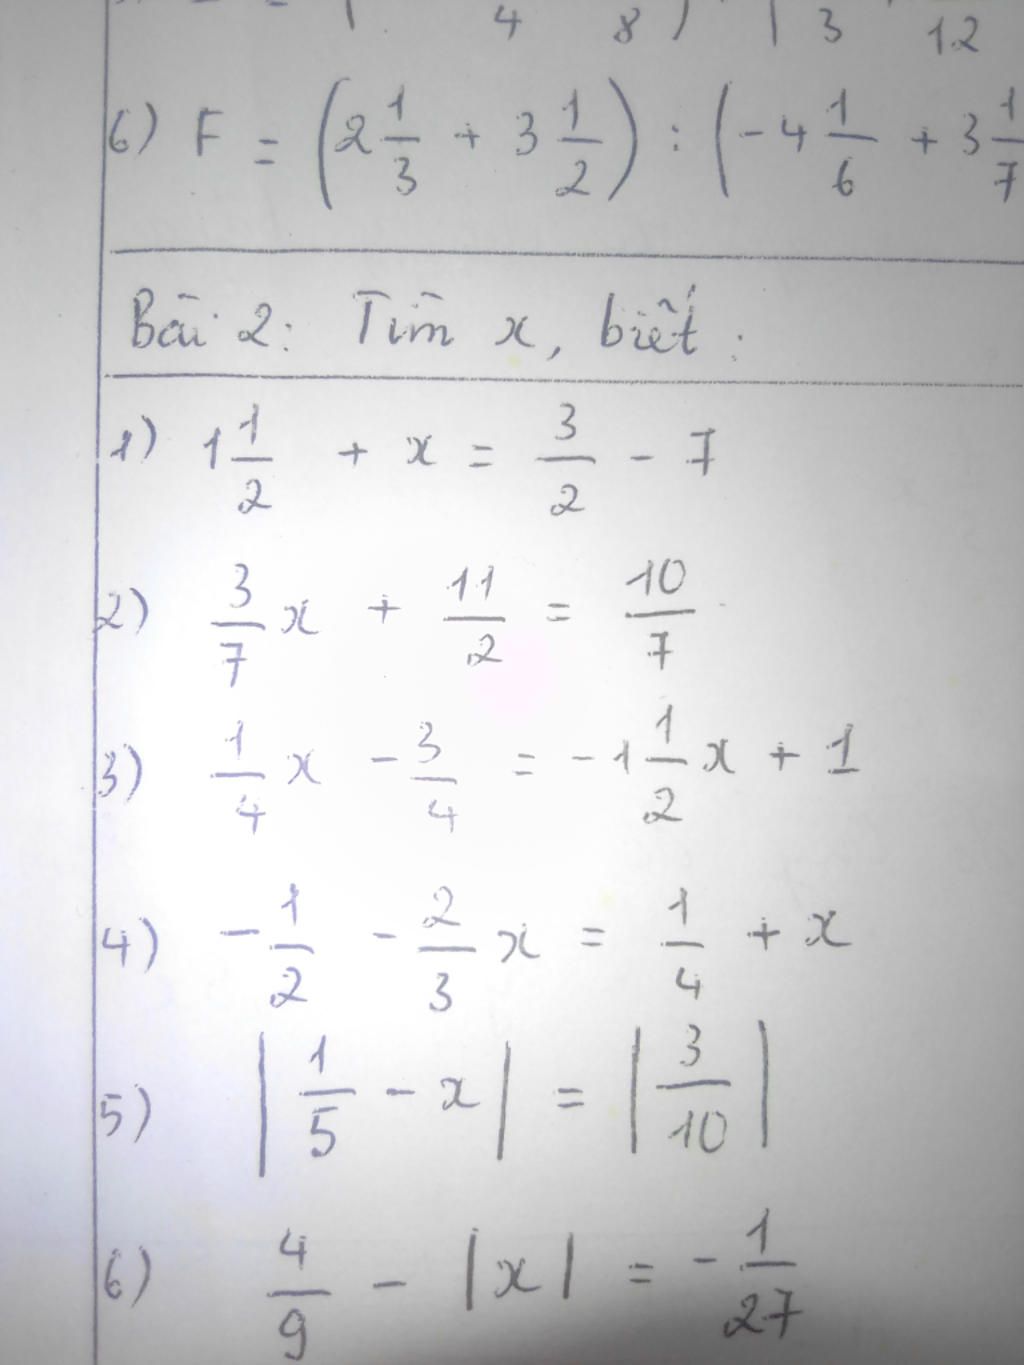 4 8 ) ( 3 12
6) F = (2 1/3 + 3 1/2) : (-4 1/6 + 3 1/7
Bài 2: Tìm x, biết:
1) 1 1/2 + x = 3/2 - 7
2) 3/7 x + 11/2 = 10/7
3) 1/4 x - 3/4 = -1 1/2 x + 1
4) -1/2 - 2/3 x = 1/4 + x
5) |1/5 - x| = |3/10|
6) 4/9 - |x| = -1/27